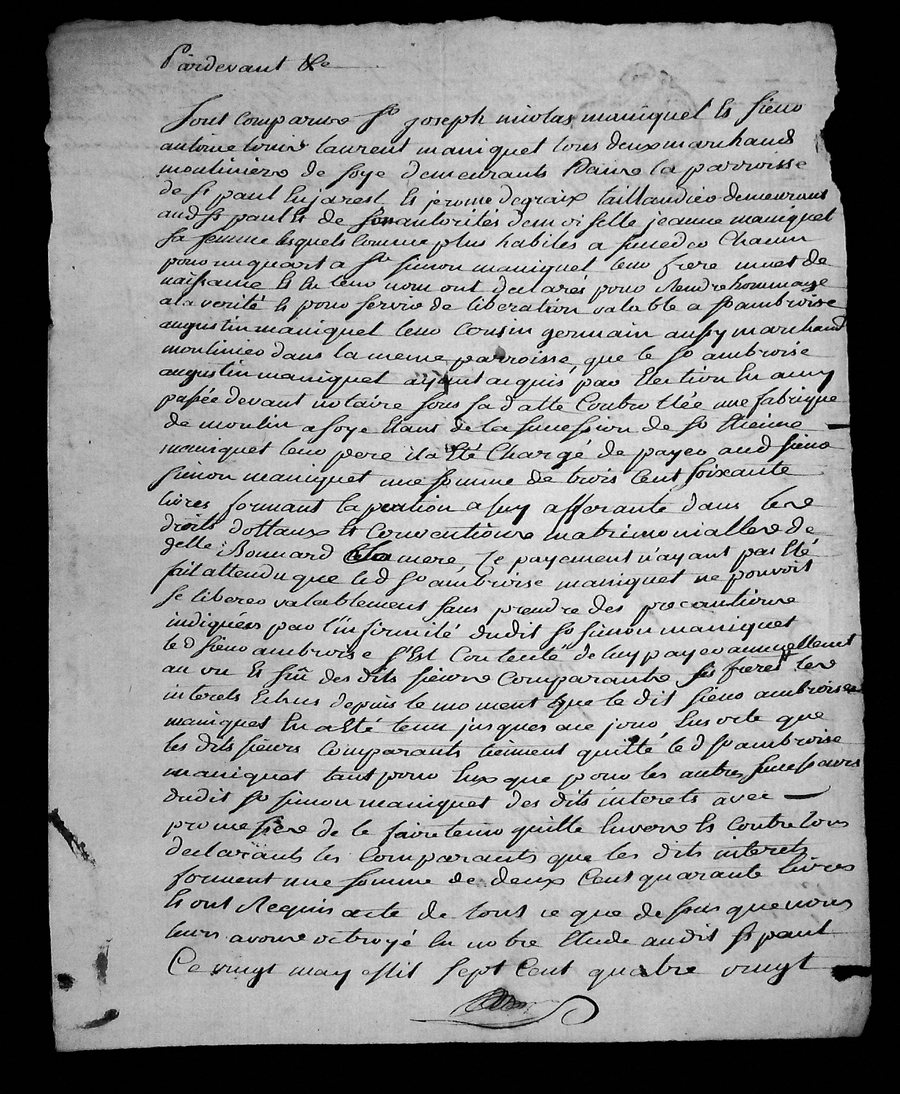 Pardevant &c
Sont comparus Sr joseph nicolas maniquet Et sieur
antoine louis laurent maniquet tous deux marchand
mouliniers de soye demeurants dans la parroisse
de St paul En jarest Et jerome degraix taillandier demeurant
aud St paul Et de son autorités demoiselle jeanne maniquet
sa femme lesquels Comme plus habiles a succeder Chacun
pour un quart a Sr simon maniquet leur frere muet de
naissance Et En leur nom ont declarés pour Rendre hommage
a la verité Et pour servir de liberation valable a Sr ambroise
augustin maniquet leur Cousin germain aussy marchand
moulinier dans la meme parroisse, que le Sr ambroise
augustin maniquet ayant acquis, par Election En amy
passée devant notaire sous sa datte Controllée une fabrique
de moulin a soye Etant de la succession de Sr Etienne
maniquet leur pere il a Eté Chargé de payer aud sieur
simon maniquet une somme de trois Cent soixante
livres formant la portion a luy afferante dans les
droits dottaux Et Conventions matrimonialles de
delle Bonnard sa mere, Ce payement n'ayant pas Eté
fait attendu que led Sr ambroise maniquet ne pouvoit
se liberer valablement sans prendre des precautions
indiquées par l'infirmité dudit Sr simon maniquet
led sieur ambroise s'Est Contenté de luy payer annuellement
au vu Et sçu des dits sieurs Comparants ses freres les
interets Echus depuis le moment que le dit sieur ambroise
maniquet En a Eté tenu jusques a ce jour Ensorte que
les dits sieurs Comparants tiennent quitté led Sr ambroise
maniquet tant pour Eux que pour les autres successeurs
dudit Sr simon maniquet des dits interets avec
promesses de le faire tenir quitte Envers Et Contre tous
declarants les Comparants que les dits interets
forment une somme de deux Cent quarante livres
Et ont Requis acte de tout ce que dessus que nous
leurs avons octroyé En notre Etude audit St paul
Ce vingt may mil sept Cent quatre vingt